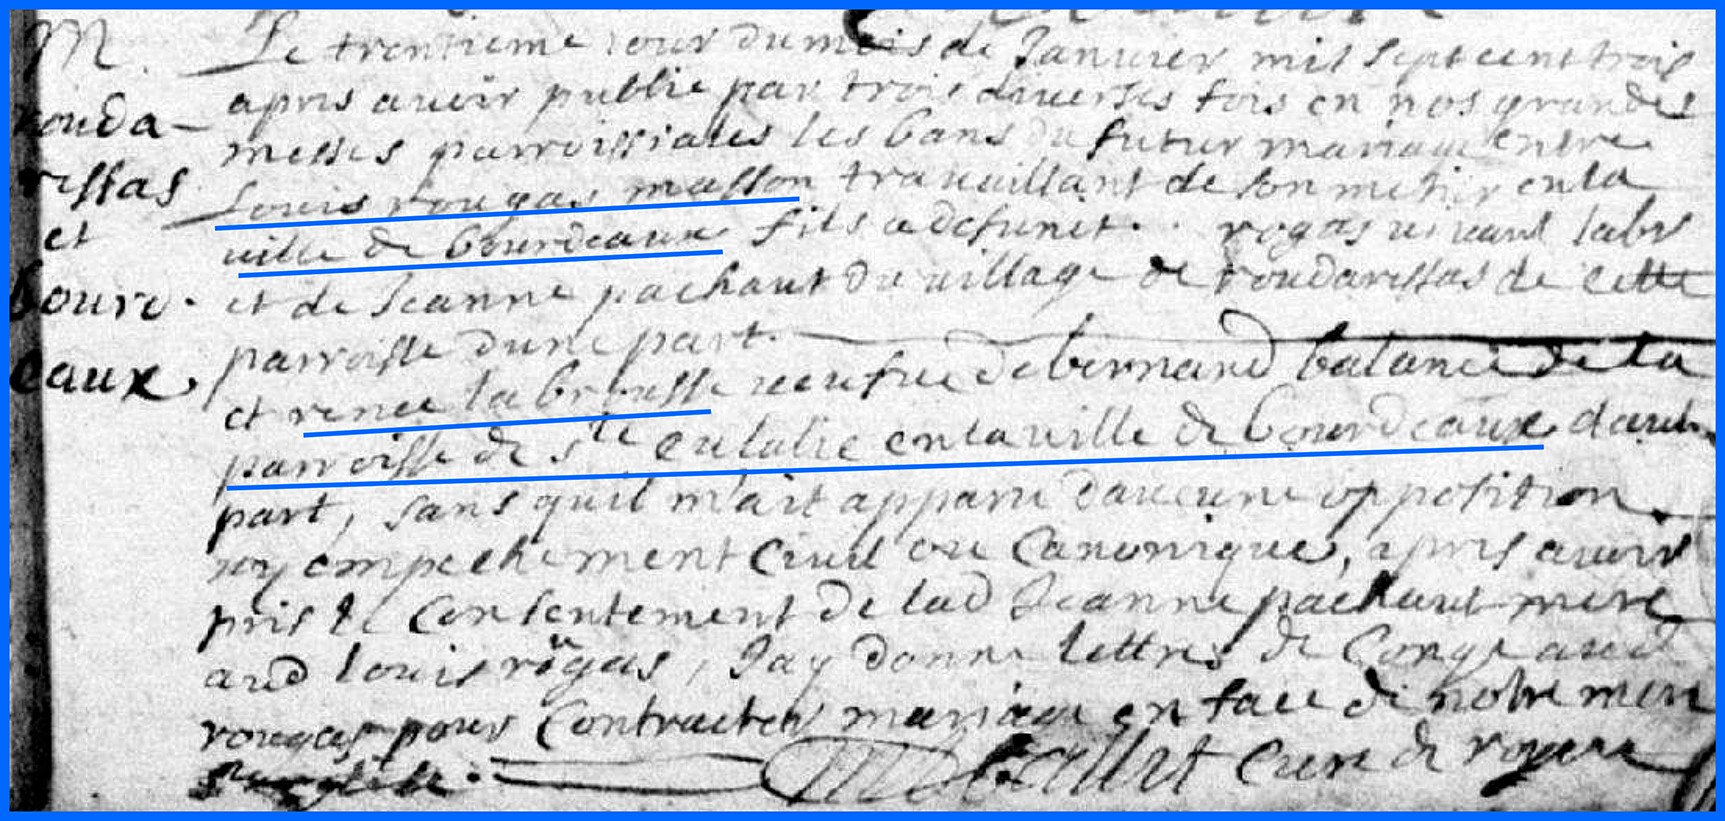 M.
rouda-
rissas
et
bourd.
eaux.
Le trentieme iour du mois de Januier mil sept cent trois
apres auoir publie par trois diuerses fois en nos grandes
messes parroissiales les bans du futur mariage entre
Louis rougas masson trauaillant de son metier en la
uille de bourdeaux fils a defunct . . rogas uiuant labr
et de Jeanne pachaut du uillage de roudarissas de cette
parroisse dune part.
et renee labrousse ueufue de bernard balance de la
parroisse de Ste eulalie en la uille de bourdeaux dautre
part, sans quil m'ait apparu daucune opposition
ny empechement Ciuil ou Canonique, apres auoir
pris le Consentement de lad Jeanne pachaut mere
aud louis rougas, Jay donne lettres de Conge aud
rougas pour Contracter mariage en face de notre mere
Ste eglise. Cure de royere